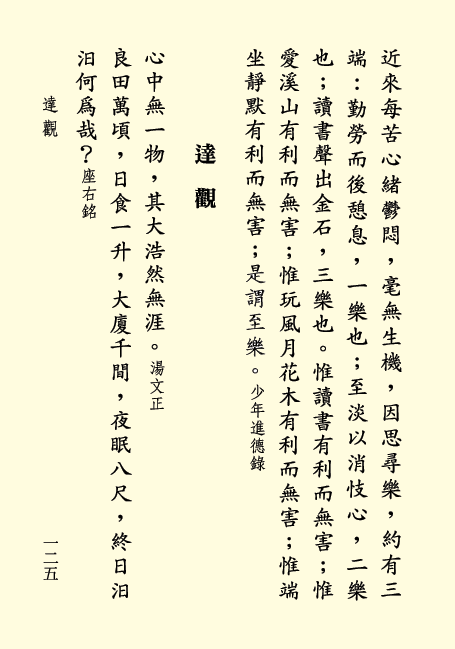 近來每苦心緒鬱悶，毫無生機，因思尋樂，約有三
端：勤勞而後憩息，一樂也；至淡以消忮心，二樂
也；讀書聲出金石，三樂也。惟讀書有利而無害；惟
愛溪山有利而無害；惟玩風月花木有利而無害；惟端
坐靜默有利而無害；是謂至樂。少年進德錄
達觀
心中無一物，其大浩然無涯。湯文正
良田萬頃，日食一升，大廈千間，夜眠八尺，終日汩
汩何為哉？座右銘
達觀
一二五